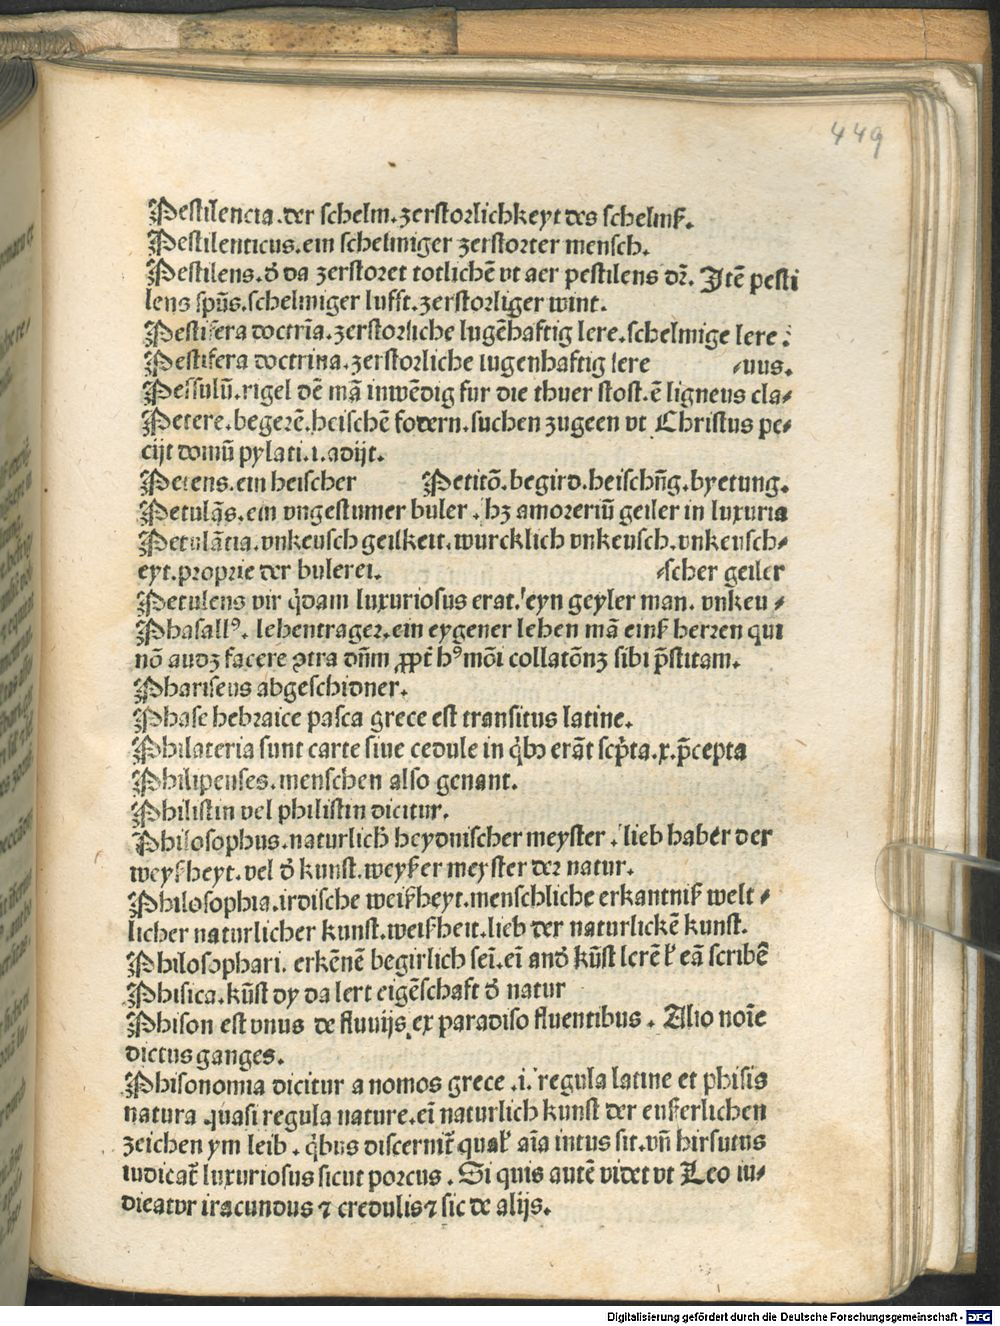 449
Pestilencia.der schelm.zerstorlichkeyt des schelmß.
Pestilenticus.ein schelmiger zerstorter mensch.
Pestilens.d̕ da zerstoret totlichē vt aer pestilens dr̄. Itē pesti
lens spūs.schelmiger lufft.zerstorliger wint.
Pestifera doctrīa.zerstorliche lugēhaftig lere.schelmige lere:
Pestifera doctrina.zerstorliche lugenhaftig lere ⸗uus.
Pessulū.rigel dē mā inwēdig fur die thuer stost.ē ligneus cla⸗
Petere.begerē.heischē fodern.suchen zugeen vt Christus pe⸗
cijt domū pylati.i.adijt.
Petens.ein heischer Petitō.begird.heischn̄g.byetung.
Petulās.ein vngestumer buler.hꝫ amoreriū geiler in luxuria
Petulātia.vnkeusch geilkeit.wurcklich vnkeusch.vnkeusch⸗
eyt.proprie der bulerei. ⸗scher geiler
Petulens vir q̇dam luxuriosus erat.eyn geyler man. vnkeu⸗
Phasallꝰ. lehentrager.ein eygener lehen mā einß herren qui
nō audꝫ facere ꝯtra dn̄m ꝓpt̄ hꝰmōi collatōnꝫ sibi p̄stitam.
Phariseus abgeschidner.
Phase hebraice pasca grece est transitus latine.
Philateria sunt carte siue cedule in q̇bꝫ erāt scp̄ta.x.p̄cepta
Philipenses.menschen also genant.
Philistin vel philistin dicitur.
Philosophus.naturlich̕ heydnischer meyster.lieb haber der
weyßheyt.vel d̕ kunst.weyßer meyster der natur.
Philosophia.irdische weißheyt.menschliche erkantniß welt⸗
licher naturlicher kunst.weißheit.lieb der naturlickē kunst.
Philosophari. erkēnē begirlich sei.ei and̕ kūst lerē ł eā scribē
Phisica.kūst dy da lert eigēschaft d̕ natur
Phison est vnus de fluuijs ex paradiso fluentibus. Alio noīe
dictus ganges.
Phisonomia dicitur a nomos grece.i.regula latine et phisis
natura.quasi regula nature.ei naturlich kunst der eußerlichen
zeichen ym leib.q̇bus discernit̄ qual̕ aīa intus sit.vn̄ hirsutus
iudicat̄ luxuriosus sicut porcus. Si quis autē videt vt Leo iu⸗
dicatvr iracundus ⁊ credulis ⁊ sic de alijs.
Digitalisierung gefördert durch die Deutsche Forschungsgemeinschaft - DFG